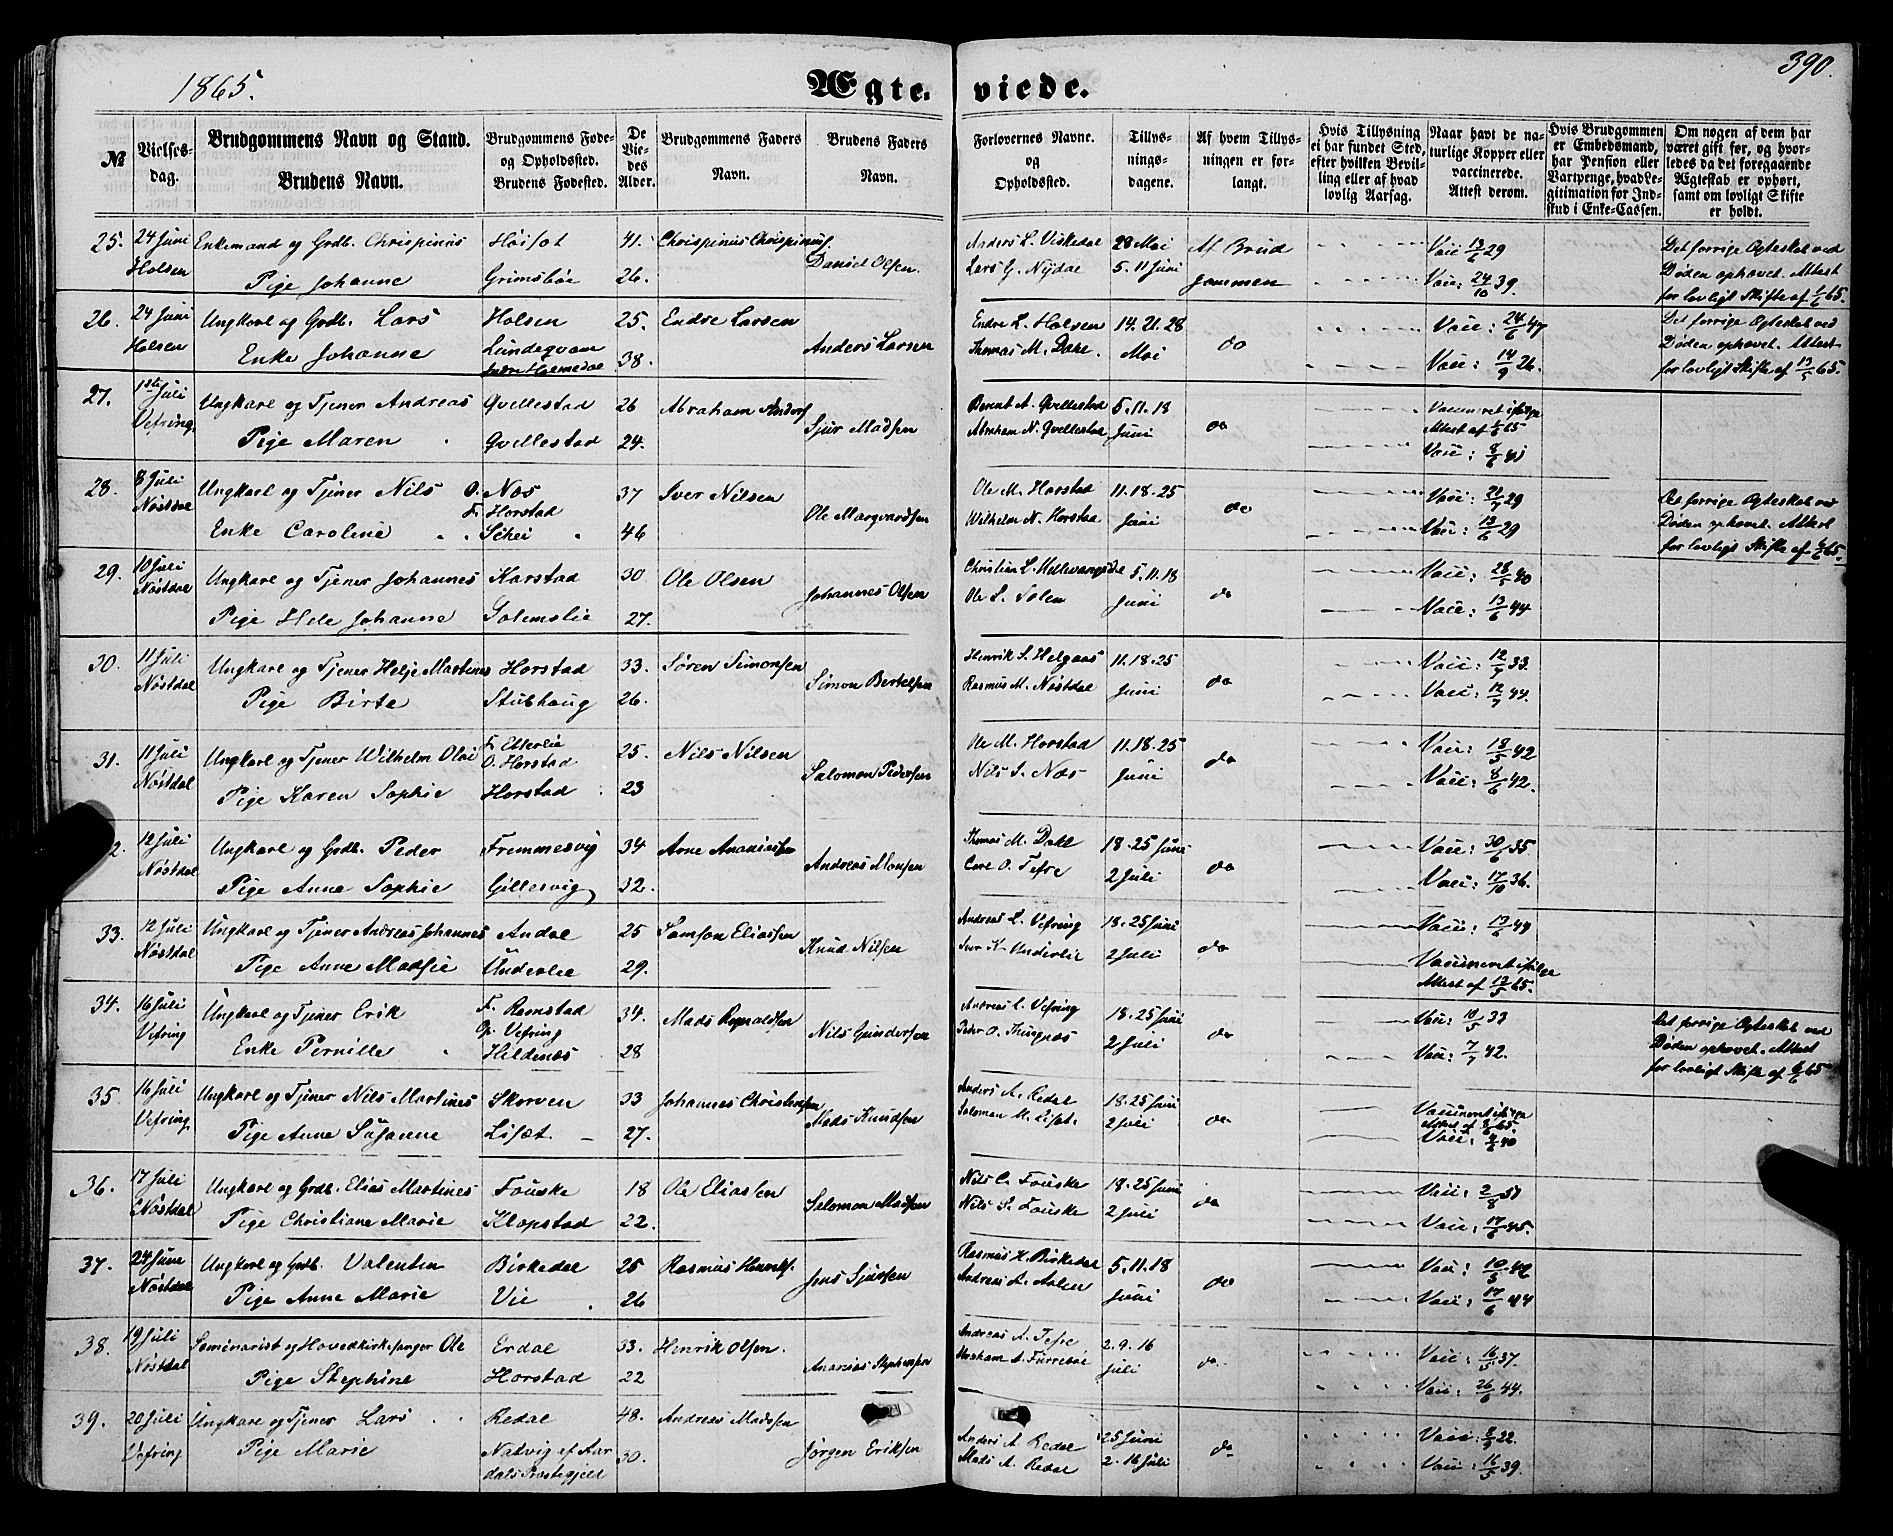 1865.
Ægte.
viede.
390.
№
Vielses-
dag.
Brudgommens Navn og Stand.
Brudens Navn.
Brudgommens Føde-
og Opholdssted.
Brudens Fødested.
De
Vie-
des
Alder.
Brudgommens Faders
Navn.
Brudens Faders
Navn.
Forlovernes Navne.
og
Opholdssted.
Tillys-
nings-
dagene.
Af hvem Tillys-
ningen er for-
langt.
Hvis Tillysning
ei har fundet Sted,
efter hvilken Bevil-
ling eller af hvad
lovlig Aarsag.
Naar havt de na-
turlige Kopper eller
vaccinerede.
Attest derom.
Hvis Brudgommen
er Embedsmand,
har Pension eller
Vartpenge, hvad Le-
gitimation for Ind-
skud i Enke-Cassen.
Om nogen af dem har
været gift før, og hvor-
ledes da det foregaaende
Ægteskab er ophørt,
samt om lovligt Skifte
er holdt.
25. 24 Juni Enkemand og Grdb. Chrispinus 41. Chrispinus Chrispinuss. Anders L. Viskedal 28 Mai Af Brud Vacc 13/6 29 Det forrige Egteskab ved
Holsen Pige Johanne Grimsbøe 26. Daniel Olsen. Lars G. Nydal 5. 11 Juni gommen Vacc: 24/10 39. Døden ophævet. Attest
for lovligt Skifte af 1/6 65.
26. 24 Juni Ungkarl og Grdb. Lars Holsen 25. Endre Larsen Endre L. Holsen 14. 21. 28 do Vacc: 24/6 47 Det forrige Egteskab ved
Holsen Enke Johanne Lundeqvam 38. Anders Larsen Thomas M. Dahl. Mai Vacc: 14/9 26. Døden ophævet. Attest
Indre Holmedal for lovligt Skifte af 13/5 65.
27. 1ste Juli Ungkarl og Tjener Andreas Qvellestad 26 Abraham Anders. Bernt A. Qvellestad 5. 11. 18 do Vaccineret ifølge
Vefring Pige Maren Qvellestad 24. Sjur Madsen Abraham N. Qvellestad Juni Attest af 1/6 65
Vacc: 9/6 41
28. 8 Juli Ungkarl og Tjener Nils O. Næs 37 Iver Nilsen Ole M. Horstad 11. 18. 25 do Vacc: 24/7 29 Det forrige Egteskab ved
Nøstdal Enke Caroline F. Horstad Schei 46 Ole Marqvardsen Wilhelm N. Horstad Juni Vacc: 13/6 29 Døden ophævet. Attest
for lovligt Skifte af 6/6 65.
29. 10 Juli Ungkarl og Tjener Johannes Karstad 30 Ole Olsen Christian L. 5. 11. 18 do Vacc: 28/5 40
Nøstdal Pige Hele Johanne Solemslie 27. Johannes Olsen Ole L. Solem Juni Vacc: 13/6 44
30. 11 Juli Ungkarl og Tjener Helje Martines Horstad 33. Søren Simonsen Henrik S. Helgaas 11. 18. 25 do Vacc: 12/7 33.
Nøstdal Pige Birte Stubhaug 26. Simon Bertelsen Rasmus M. Nøstdal Juni Vacc: 12/7 44.
31. 11 Juli Ungkarl og Tjener Wilhelm Olai F. Etterlie 25. Nils Nilsen Ole M. Horstad 11. 18. 25 do Vacc: 18/5 42
O. Horstad
Nøstdal Pige Karen Sophie Horstad 23 Salomon Pedersen Nils I. Næs Juni Vacc: 8/6 42.
2. 12 Juli Ungkarl og Grdb. Peder Fremmesvig 34 Arne Ananiassen Thomas M. Dahl 18. 25 Juni do Vacc: 30/6 35
Nøstdal Pige Anna Sophie Gillesvig 32. Andreas Monsen Carl O. Tefre 2 Juli Vacc: 17/10 36.
33. 12 Juli Ungkarl og Tjener Andreas Johannes Andal 25 Samson Eliassen Andreas L. Vefring 18. 25 Juni do Vacc: 49
Nøstdal Pige Anne Madsie Underlie 29. Knud Nilsen Iver K. Underlie 2 Juli Vaccineret ifølge
Attest af 13/5 65.
34. 16 Juli Ungkarl og Tjener Erik F. Ramstad 34. Mads Rognaldsen Andreas L. Vefring 18. 25 Juni do Vacc: 18/5 33 Det forrige Egteskab ved
O. Vefring
Vefring Enke Pernille Hildenæs 28 Nils Gundersen Peder O. Thingnæs 2 Juli Vacc: 7/7 42. Døden ophævet. Attest
for lovligt Skifte af 6/6 65
35. 16 Juli Ungkarl og Tjener Nils Martines Skorven 33 Johannes Christensen Anders A. Redal 18. 25 Juni do Vaccineret ifølge
Vefring Pige Anne Susanne Løset. 27. Mads Knudsen Salomon M. Løset. 2 Juli Attest af 8/6 65.
Vacc: 9/6 40
36. 17 Juli Ungkarl og Grdb. Elias Martines Fouske 18 Ole Eliassen Nils C. Fouske 18. 25 Juni do Vacc: 2/8 51
Nøstdal Pige Christiane Marie Klopstad 22. Salomon Madsen Nils S. Fouske 2 Juli Vacc: 17/6 45.
37. 24 Juni Ungkarl og Grdb. Valentin Birkedal 25 Rasmus Henriks. Rasmus H. Birkedal 5. 11. 18 do Vacc: 10/5 42
Nøstdal Pige Anne Marie Vie 26 Jens Sjursen Andreas A. Aalen Juni Vacc: 17/6 44
38. 19 Juli Seminarist og Hovedkirkesanger Ole Erdal 33. Henrik Olsen. Andreas A. Tefre 2. 9. 16 do Vacc: 16/5 37.
Nøstdal Pige Stephine Horstad 22 Ananias Stephensen Abraham A. Furrebøe Juli Vacc: 26/6 44.
39. 20 Juli Ungkarl og Tjener Lars Redal 48. Andreas Madsen Anders A. Redal 25 Juni do Vacc: 22.
Vefring Pige Marie Natvig af Aar 30. Jørgen Eriksen Mads A. Redal 2. 16 Juli Vacc: 16/5 39.
dals Præstegjeld